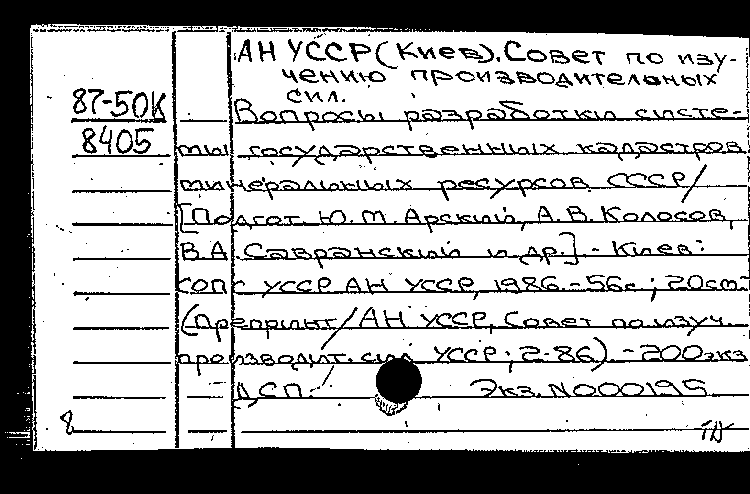 АН УССР (Киев). Совет по изу-
чению производительных
сил.
87-50К
8405
Вопросы разработки систе-
мы государственных кадастров
минеральных ресурсов СССР/
[Подгот. Ю.М. Арский, А.В. Колосов,
В.А. Савранский и др.] - Киев:
СОПС УССР АН УССР, 1986. - 56с.; 20см-
(Препринт/АН УССР, Совет по изуч.
производит. сил УССР; 2-86). - 200экз
ДСП. Экз. N000195
8